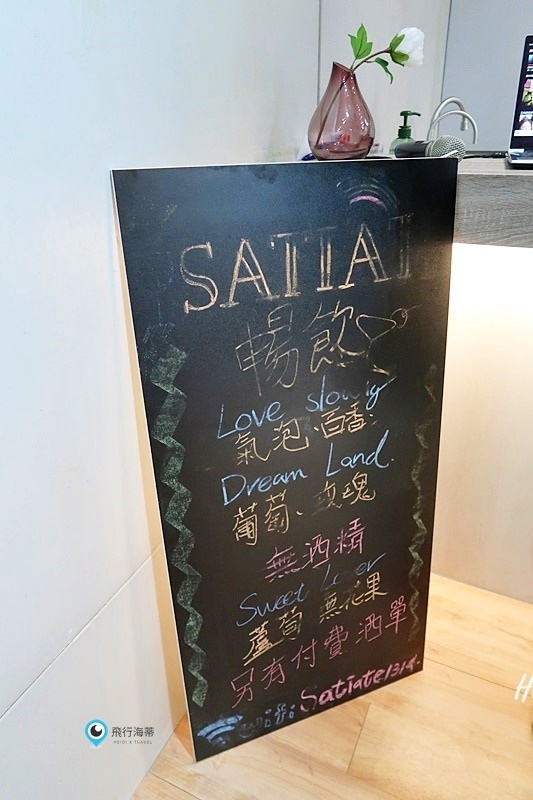 SATIAT
暢飲
Love slowly
氣泡、百香
Dream Land.
葡萄、玫瑰
無酒精
Sweet Lover
蘆筍 無花果
另有付費酒單
Satiate1314.
飛行海蒂
HEIDI X TRAVEL
H